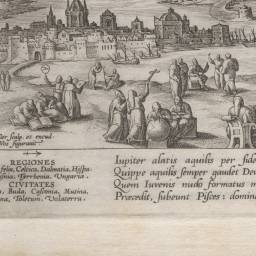 ller sculp. et excud.
Vos figurauit.
REGIONES
felix, Celtica, Dalmatia, Hispa=
Tyrrhenia, Vngaria.
CIVITATES
Buda, Cassonia, Mutina,
na, Toletum, Volaterra.
Iupiter alatis aquilis per side
Quippe aquilis semper gaudet Deu
Quem Iuvenis nudo formatus m
Præcedit, subeunt Pisces: domin